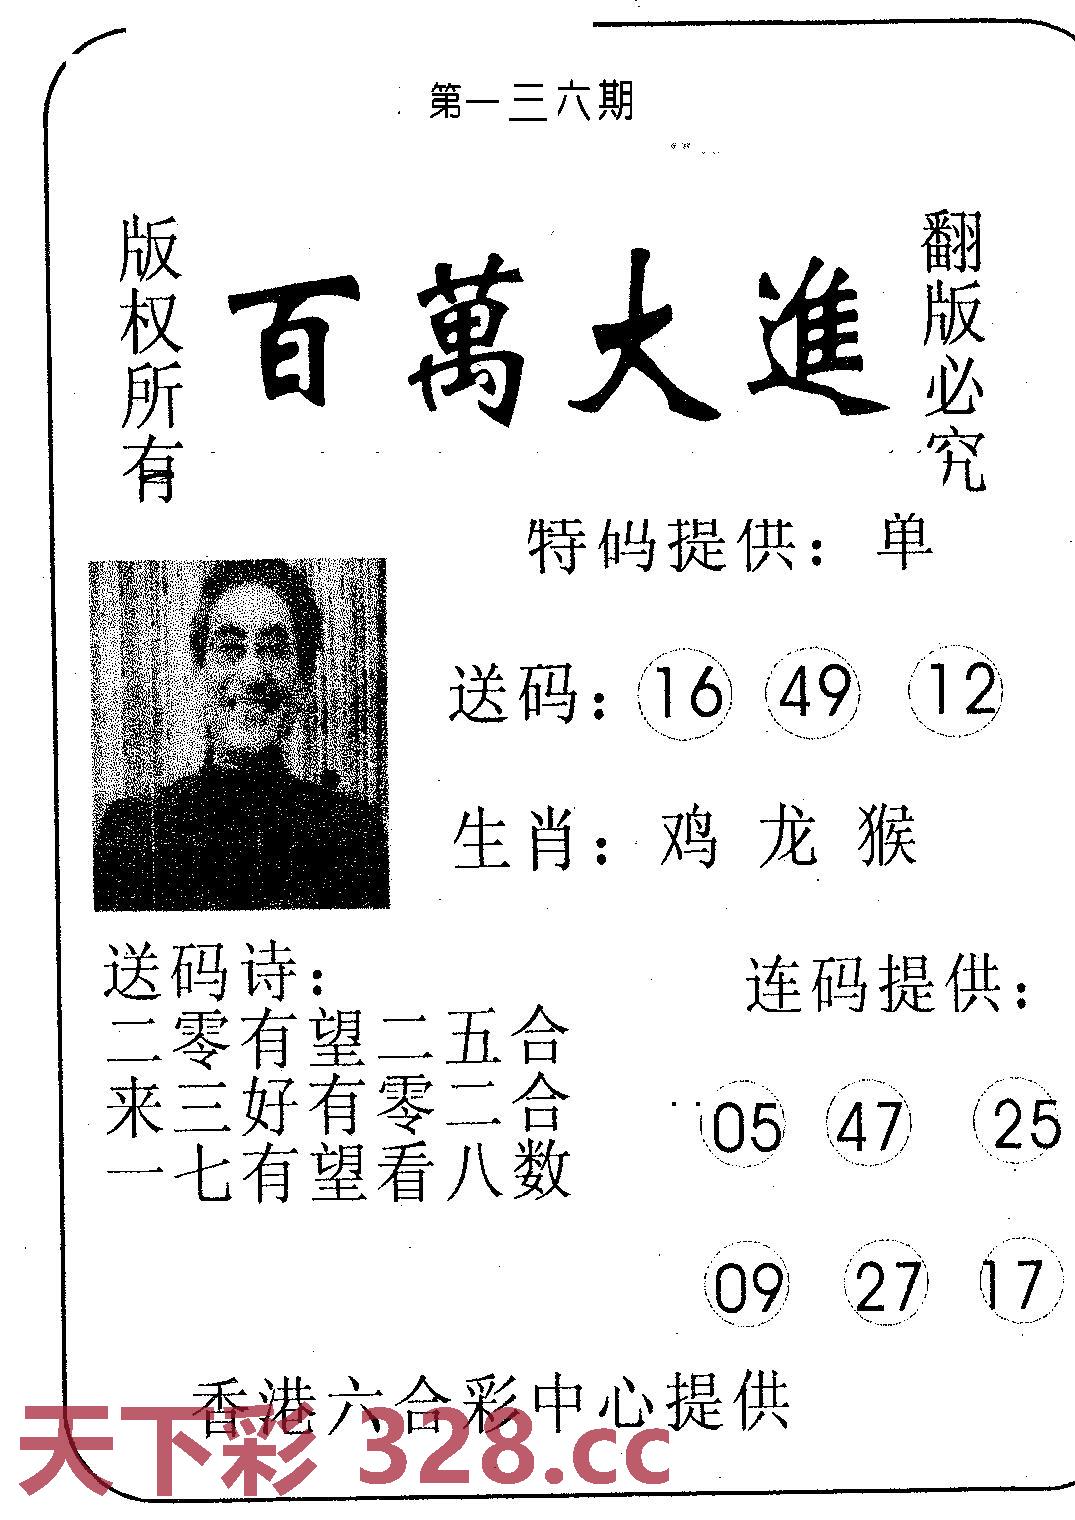 第一三六期
版权所有
百萬大進
翻版必究
特码提供：单
送码：16 49 12
生肖：鸡 龙 猴
送码诗：
二零有望二五合
来三好有零二合
一七有望看八数
连码提供：
05 47 25
09 27 17
香港六合彩中心提供
天下彩 328.cc